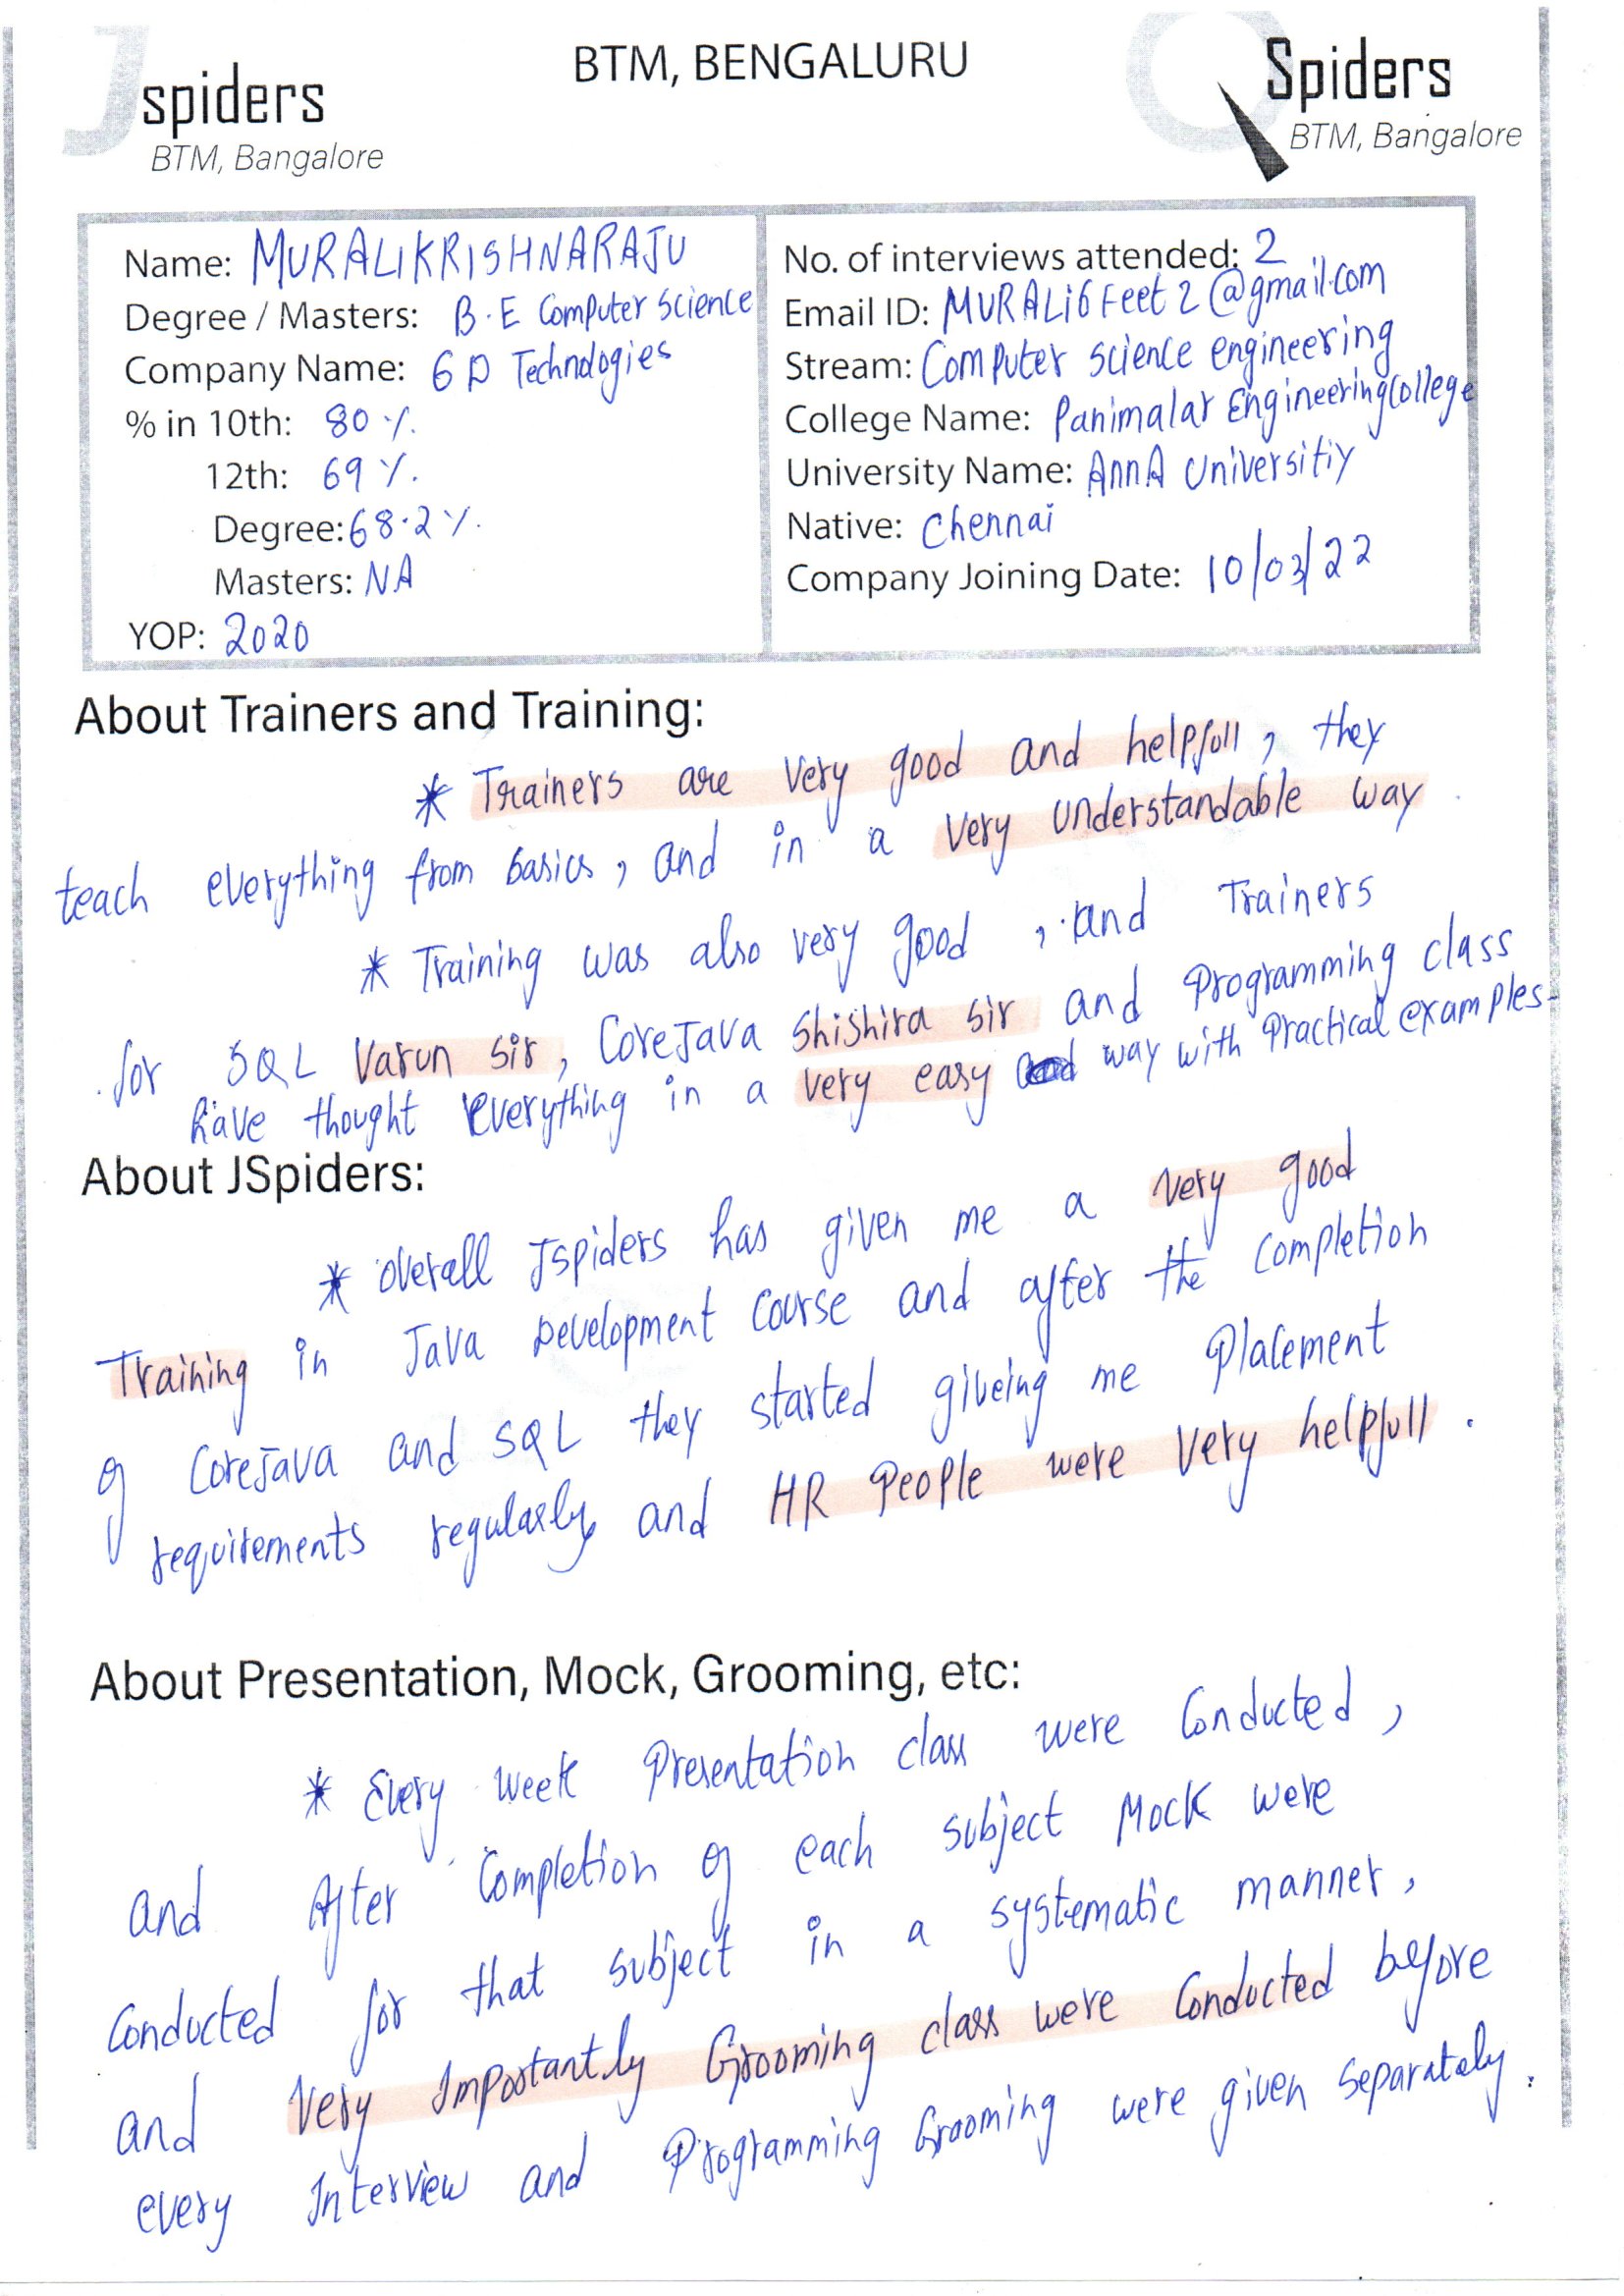 BTM, BENGALURU
Jspiders
BTM, Bangalore
QSpiders
BTM, Bangalore
Name: MURALIKRISHNARAJU
Degree / Masters: B.E Computer Science
Company Name: 6D Technologies
% in 10th: 80 %.
12th: 69 %.
Degree: 68.2 %.
Masters: NA
YOP: 2020
No. of interviews attended: 2
Email ID: MURALI6Feet2@gmail.com
Stream: Computer science engineering
College Name: Panimalar Engineering College
University Name: AnnA Universitiy
Native: Chennai
Company Joining Date: 10/03/22
About Trainers and Training:
* Trainers are very good and helpfull, they
teach everything from basics, and in a very understandable way
* Training was also very good, and Trainers
for SQL Varun sir, CoreJava Shishira sir and Programming class
have thought everything in a very easy way with Practical examples-
About JSpiders:
* Overall Jspiders has given me a very good
Training in Java Development course and after the completion
of CoreJava and SQL they started giveing me Placement
requirements regularly and HR People were very helpfull.
About Presentation, Mock, Grooming, etc:
* Every week Presentation class were Conducted,
and After Completion of each subject Mock were
Conducted for that subject in a systematic manner,
and Very Importantly Grooming class were Conducted before
every Interview and Programming Grooming were given Separately.